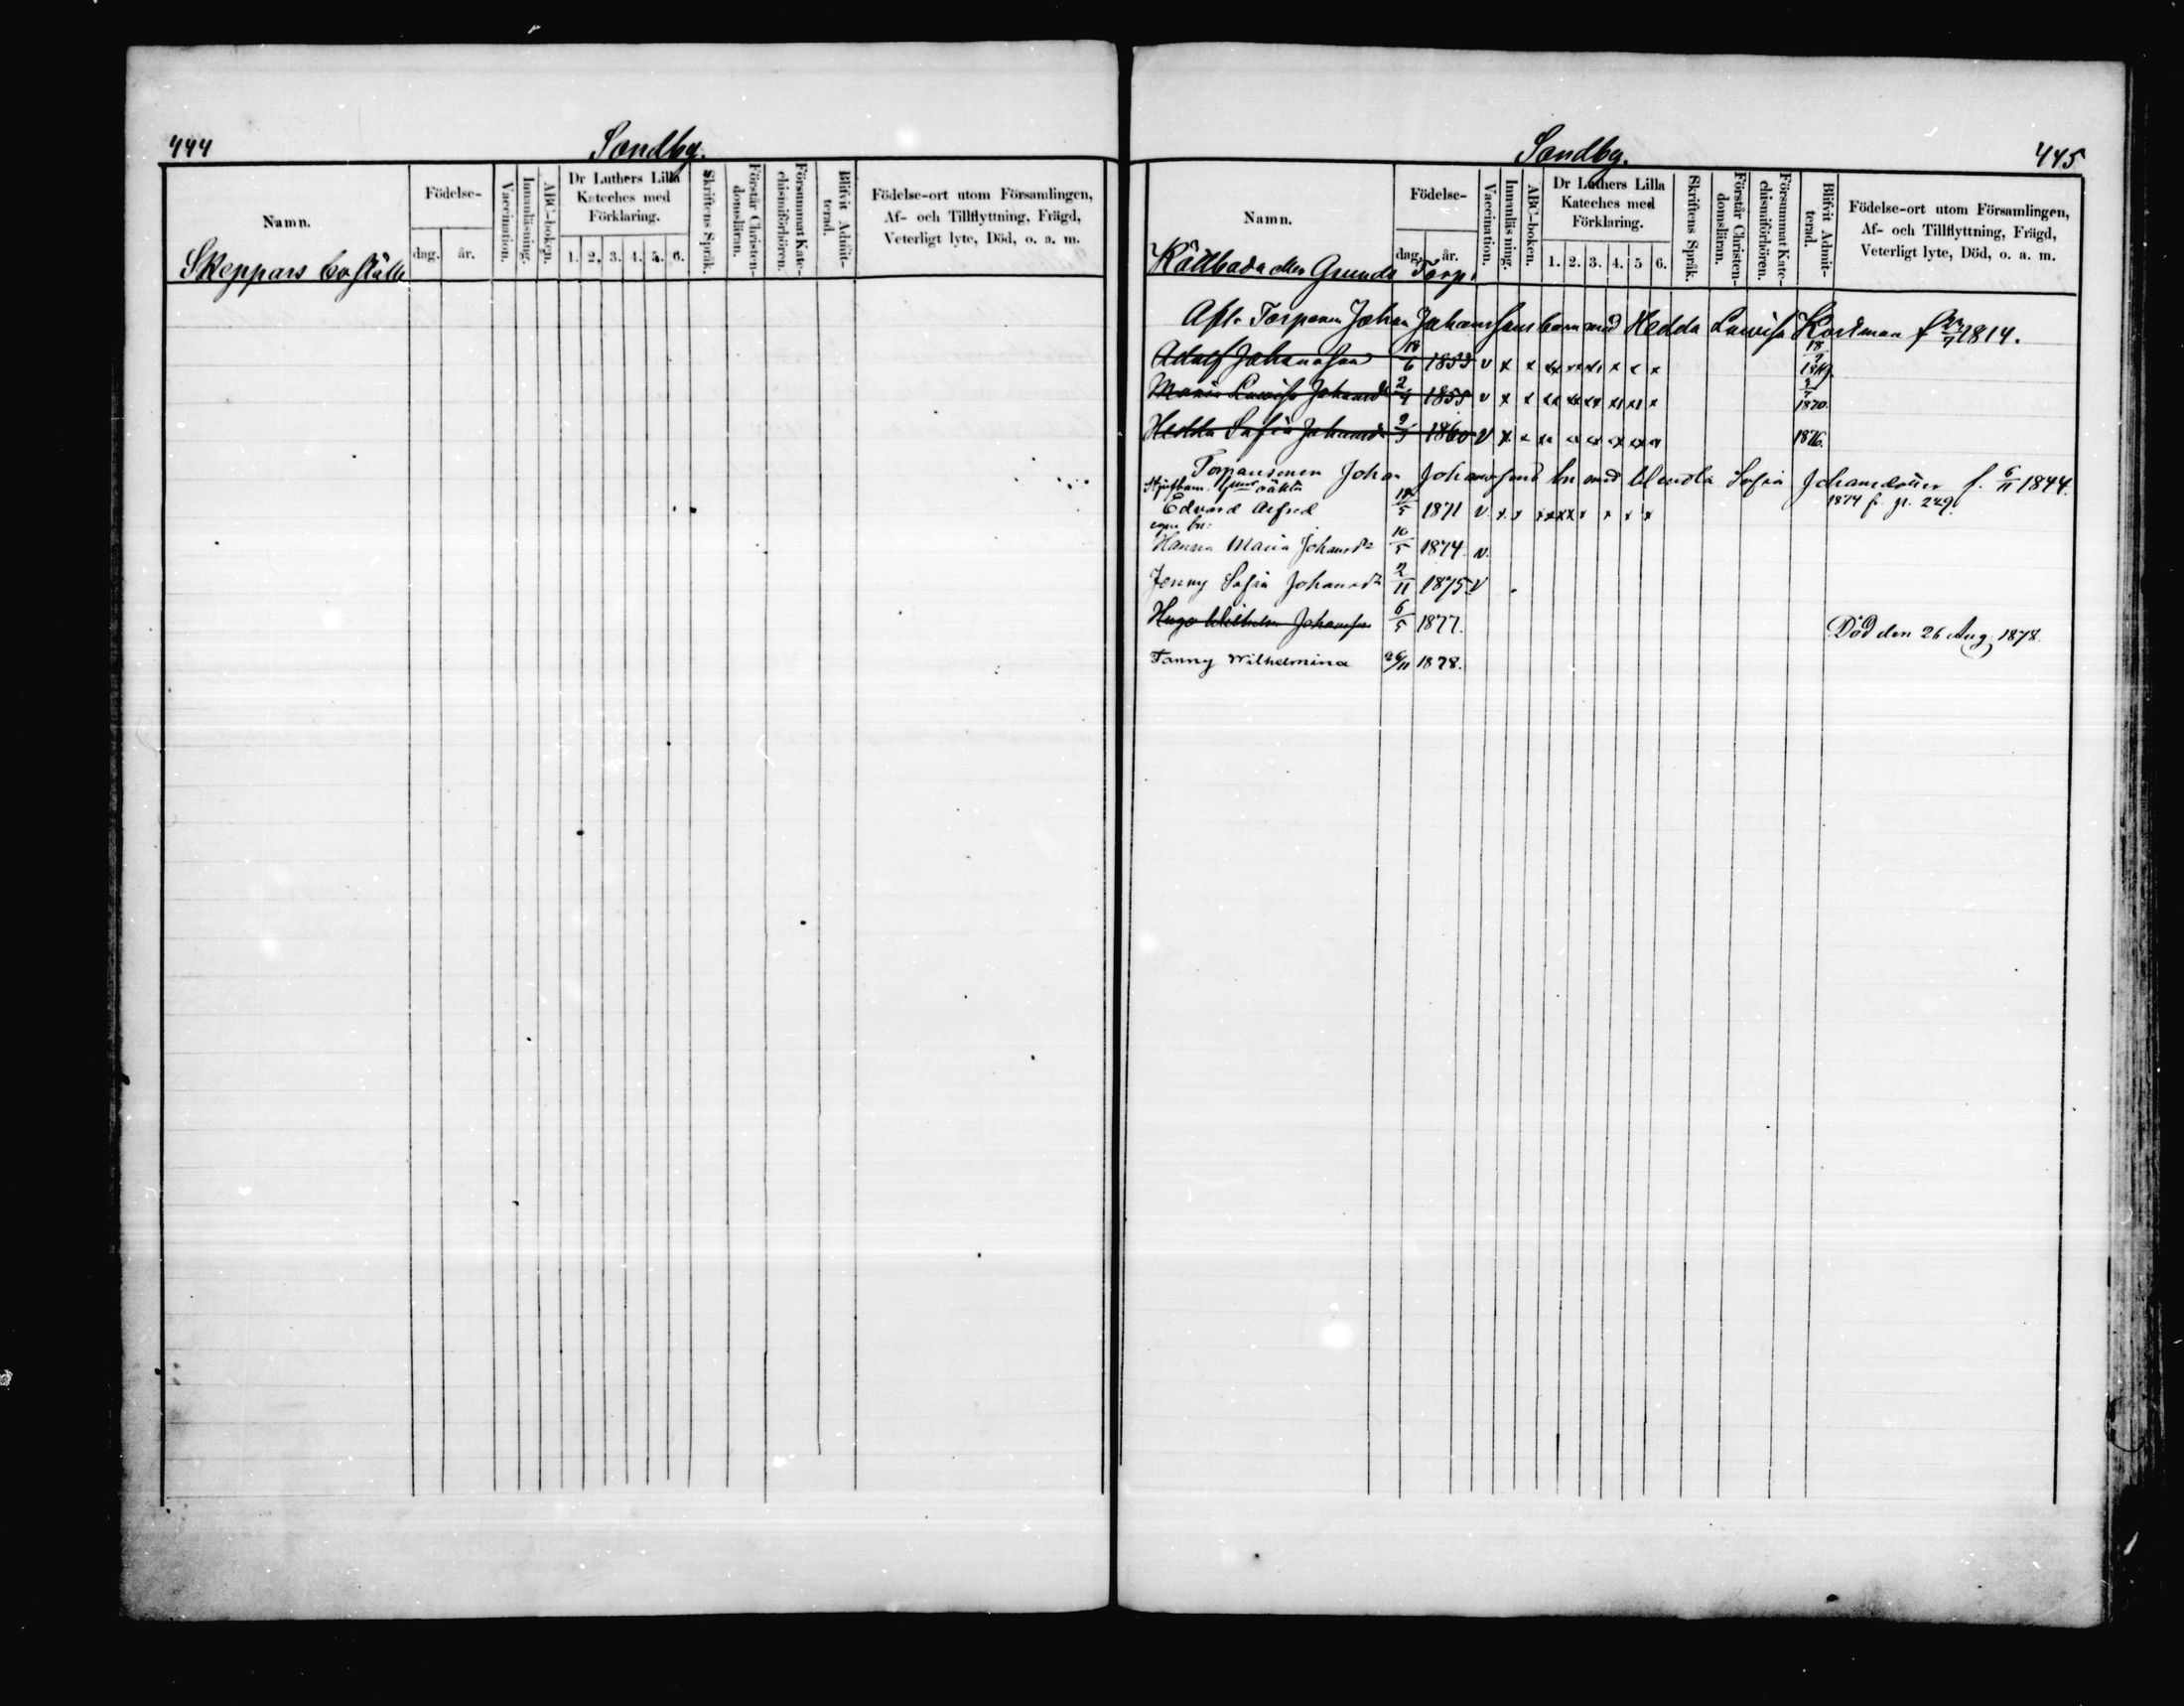 444
Sandby.
Namn.
Födelse-
dag.
år.
Vaccination.
Innanläsning.
ABC-boken.
Dr Luthers Lilla
Kateches med
Förklaring.
1. 2. 3. 4. 5. 6.
Skriftens Språk.
Förstår Christen-
domsläran.
Försummat Kate-
chismiförhören.
Blifvit Admit-
terad.
Födelse-ort utom Församlingen,
Af- och Tillflyttning, Frägd,
Veterligt lyte, Död, o. a. m.
Skeppars boställe
Sandby.
445
Namn.
Födelse-
dag.
år.
Vaccination.
Innanläsning.
ABC-boken.
Dr Luthers Lilla
Kateches med
Förklaring.
1. 2. 3. 4. 5 6.
Skriftens Språk.
Förstår Christen-
domsläran.
Försummat Kate-
chismiförhören.
Blifvit Admit-
terad.
Födelse-ort utom Församlingen,
Af- och Tillflyttning, Frägd,
Veterligt lyte, Död, o. a. m.
eller Grunds Torp.
Afl. Torparen Johan Johanssons barn med Hedda Lovisa f 1814.
Adolf Johansson 18/6 1853 v x x
Maria Lovisa Johansdr 2/4 1855 v x x 1870.
Hedda Sofia Johansdr 1860 v x x 1876.
Torparsonen Johan Johanssons bn med Sofia Johansdotter f. 6/11 1844.
1874 fr. p. 249.
Styfbarn oäkta
Edvard Alfred 1871 v. x x
egna bn:
Hanna Maria Johansdr 10/5 1874. v.
Jenny Sofia Johansdr 2/11 1875 v
Hugo Wilhelm Johansson 6/5 1877. Död den 26 Aug. 1878.
Fanny Wilhelmina 26/11 1878.